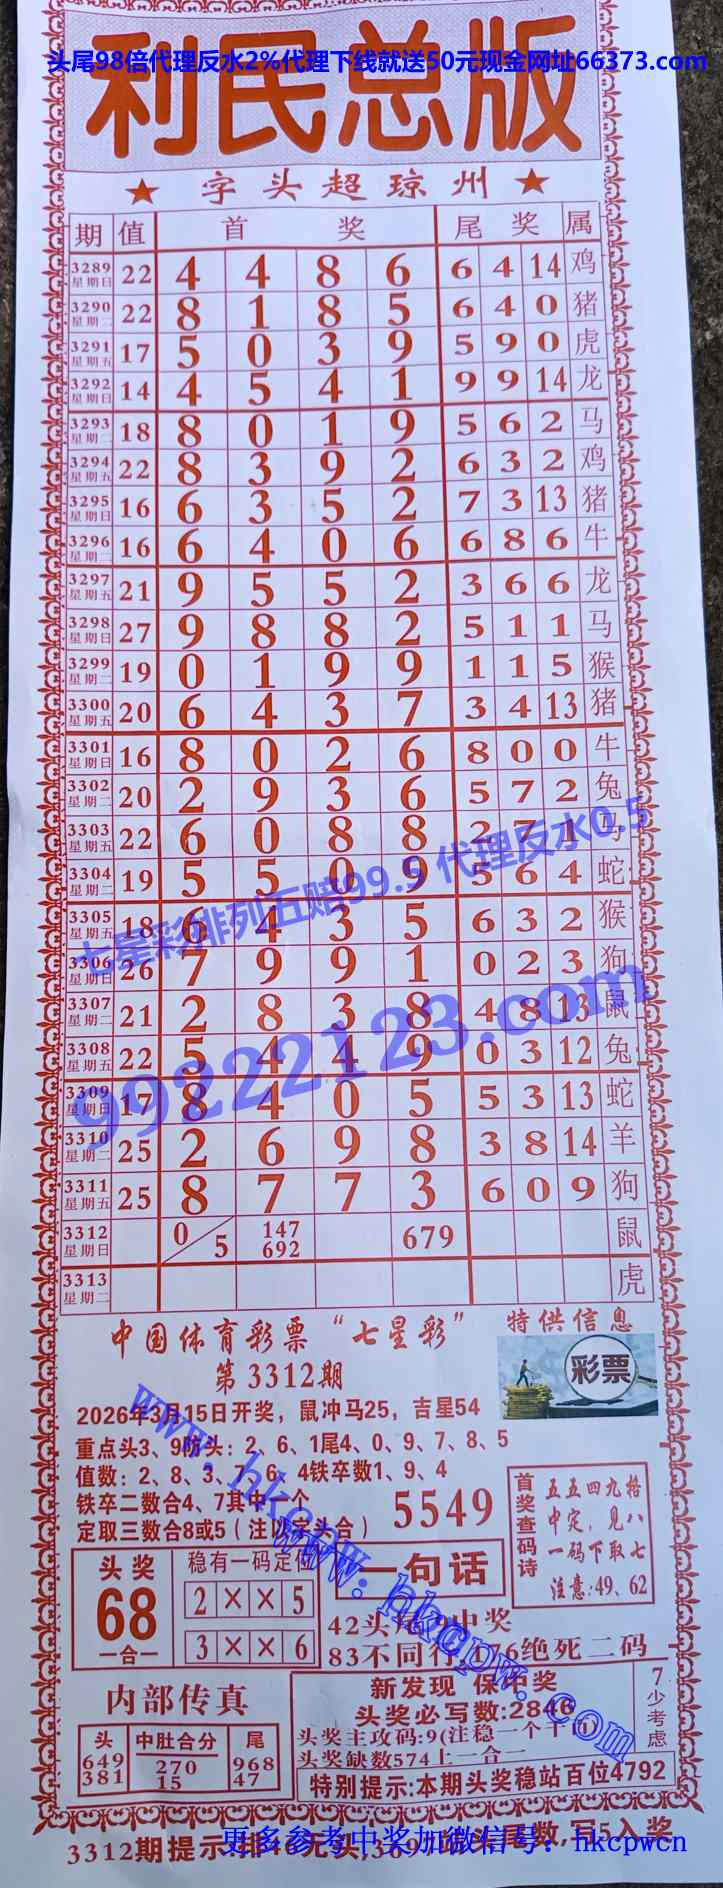 头尾98倍代理反水2%代理下线就送50元现金网址66373.com
利民总版
★ 字头超琼州 ★
期 值 首 奖 尾 奖 属
3289 星期日 22 4 4 8 6 6 4 14 鸡
3290 星期二 22 8 1 8 5 6 4 0 猪
3291 星期五 17 5 0 3 9 5 9 0 虎
3292 星期日 14 4 5 4 1 9 9 14 龙
3293 星期二 18 8 0 1 9 5 6 2 马
3294 星期五 22 8 3 9 2 6 3 2 鸡
3295 星期日 16 6 3 5 2 7 3 13 猪
3296 星期二 16 6 4 0 6 6 8 6 牛
3297 星期五 21 9 5 5 2 3 6 6 龙
3298 星期日 27 9 8 8 2 5 1 1 马
3299 星期二 19 0 1 9 9 1 1 5 猴
3300 星期五 20 6 4 3 7 3 4 13 猪
3301 星期日 16 8 0 2 6 8 0 0 牛
3302 星期二 20 2 9 3 6 5 7 2 兔
3303 星期五 22 6 0 8 8 2 7 1 马
3304 星期二 19 5 5 0 9 5 6 4 蛇
七星彩排列五赔99.5 代理反水0.5
3305 星期五 18 6 4 3 5 6 3 2 猴
3306 星期日 26 7 9 9 1 0 2 3 狗
3307 星期二 21 2 8 3 8 4 8 13 鼠
3308 星期五 22 5 4 4 9 0 3 12 兔
99222123.com
3309 星期日 17 8 4 0 5 5 3 13 蛇
3310 星期二 25 2 6 9 8 3 8 14 羊
3311 星期五 25 8 7 7 3 6 0 9 狗
3312 星期日 0/5 147 692 679 鼠
3313 星期二 虎
中国体育彩票“七星彩” 特供信息
第3312期
彩票
2026年3月15日开奖，鼠冲马25，吉星54
重点头3、9防头：2、6、1尾4、0、9、7、8、5
值数：2、8、3、7、6、4铁卒数1、9、4
铁卒二数合4、7其中一个
定取三数合8或5（注以字头合）
5549
首奖查码诗
五五四九格
中定，见八
一码下取七
注意:49、62
头奖
68
一合一
稳有一码定位
2××5
3××6
一句话
42头尾 9中奖
83不同行,176绝死二码
www.hkcpw.www.hkcpw.com
内部传真
头 649 381
中肚合分 270 15
尾 968 47
新发现 保中奖
头奖必写数:2846
头奖主攻码:9(注稳一个千 百)
头奖缺数574上一合一
7少考虑
特别提示:本期头奖稳站百位4792
3312期提示:排16元头,3697站头尾数,写5入奖
更多参考中奖加微信号：hkcpwcn